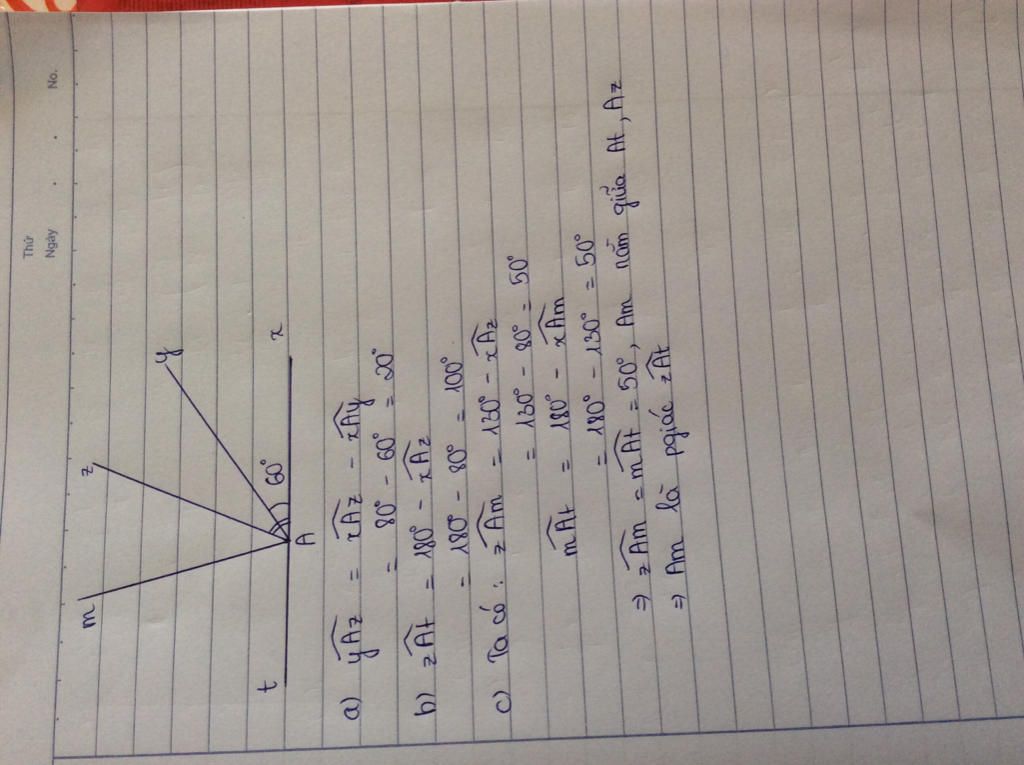 Thứ
Ngày . . No.
m
z
y
t
60°
x
A
a) yAz = xAz - xAy
= 80° - 60° = 20°
b) zAt = 180° - xAz
= 180° - 80° = 100°
c) Ta có : zAm = 130° - xAz
= 130° - 80° = 50°
mAt = 180° - xAm
= 180° - 130° = 50°
⇒ zAm = mAt = 50°, Am nằm giữa At, Az
⇒ Am là pgiác zAt